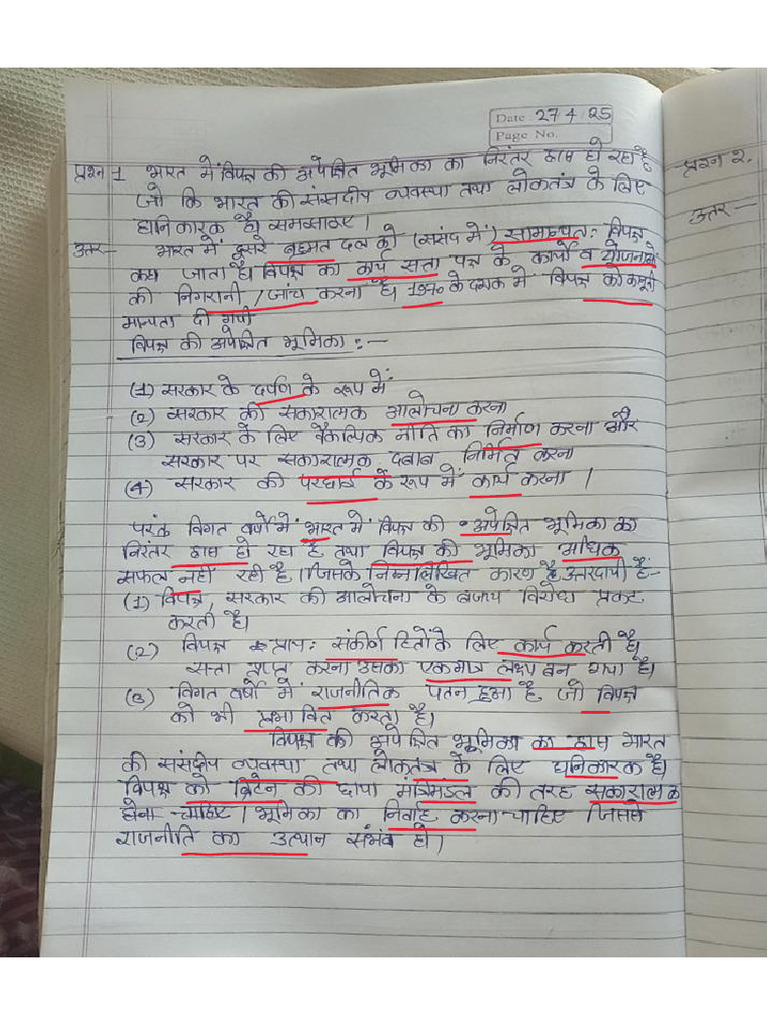 Date 27 4 25
Page No.
प्रश्न 1 भारत में विपक्ष की अपेक्षित भूमिका का निरंतर ह्रास हो रहा है
जो कि भारत की संसदीय व्यवस्था तथा लोकतंत्र के लिए
हानिकारक है। समझाइए।
उत्तर- भारत में दूसरे बहुमत दल को (संसद में) सामान्यतः विपक्ष
कहा जाता है। विपक्ष का कार्य सत्ता पक्ष के कार्यों व योजनाओं
की निगरानी / जांच करना है। 1970 के दशक में विपक्ष को कानूनी
मान्यता दी गयी
विपक्ष की अपेक्षित भूमिका :-
(1) सरकार के दर्पण के रूप में
(2) सरकार की सकारात्मक आलोचना करना
(3) सरकार के लिए वैकल्पिक नीति का निर्माण करना और
सरकार पर सकारात्मक दबाव निर्मित करना
(4) सरकार की परछाई के रूप में कार्य करना।
परंतु विगत वर्षों में भारत में विपक्ष की अपेक्षित भूमिका का
निरंतर ह्रास हो रहा है तथा विपक्ष की भूमिका अधिक
सफल नहीं रही है। जिसके निम्नलिखित कारण है, उत्तरदायी है-
(1) विपक्ष, सरकार की आलोचना के बजाय विरोध प्रकट
करती है।
(2) विपक्ष प्राय: संकीर्ण हितों के लिए कार्य करती है।
सत्ता प्राप्त करना उसका एकमात्र लक्ष्य बन गया है।
(3) विगत वर्षों में राजनीतिक पतन हुआ है, जो विपक्ष
को भी प्रभावित करता है।
विपक्ष की अपेक्षित भूमिका का ह्रास भारत
की संसदीय व्यवस्था तथा लोकतंत्र के लिए हानिकारक है।
विपक्ष को ब्रिटेन की छाया मंत्रिमंडल की तरह सकारात्मक
होना चाहिए। भूमिका का निर्वाह करना चाहिए जिससे
राजनीति का उत्थान संभव हो।
प्रश्न २.
उत्तर —